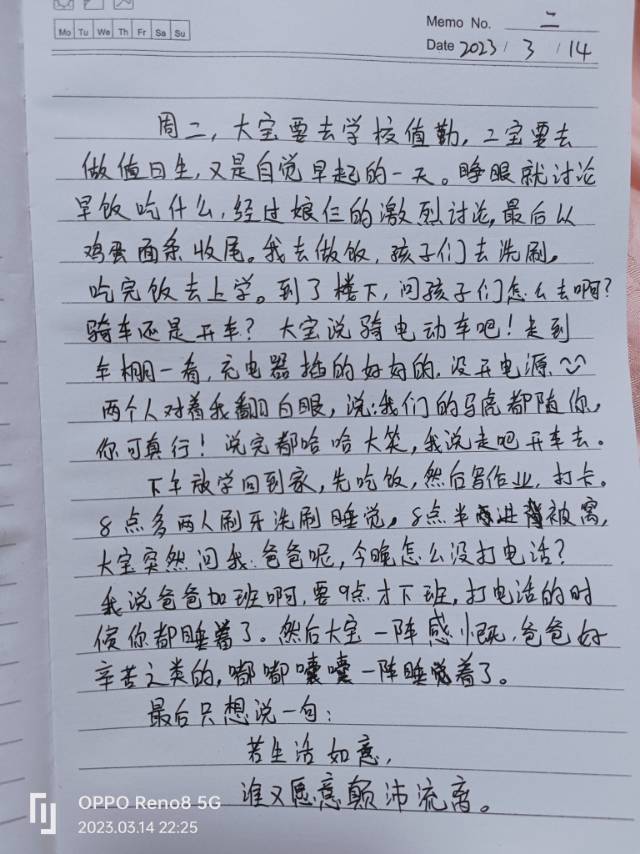 Memo No. 二
Mo Tu We Th Fr Sa Su
Date 2023 / 3 / 14
周二,大宝要去学校值勤,二宝要去
做值日生,又是自觉早起的一天。睁眼就讨论
早饭吃什么,经过娘仨的激烈讨论,最后以
鸡蛋面条收尾。我去做饭,孩子们去洗刷。
吃完饭去上学。到了楼下,问孩子们怎么去啊?
骑车还是开车?大宝说骑电动车吧!走到
车棚一看,充电器插的好好的,没开电源
两个人对着我翻白眼,说:我们的马虎都随你,
你可真行!说完都哈哈大笑,我说走吧开车去。
下午放学回到家,先吃饭,然后写作业,打卡。
8点多两人刷牙洗刷睡觉,8点半进被窝,
大宝突然问我:爸爸呢,今晚怎么没打电话?
我说爸爸加班啊,要9点才下班,打电话的时
候你都睡着了。然后大宝一阵感慨,爸爸好
辛苦之类的,嘟嘟囔囔一阵睡着了。
最后只想说一句:
若生活如意,
谁又愿意颠沛流离。
OPPO Reno8 5G
2023.03.14 22:25